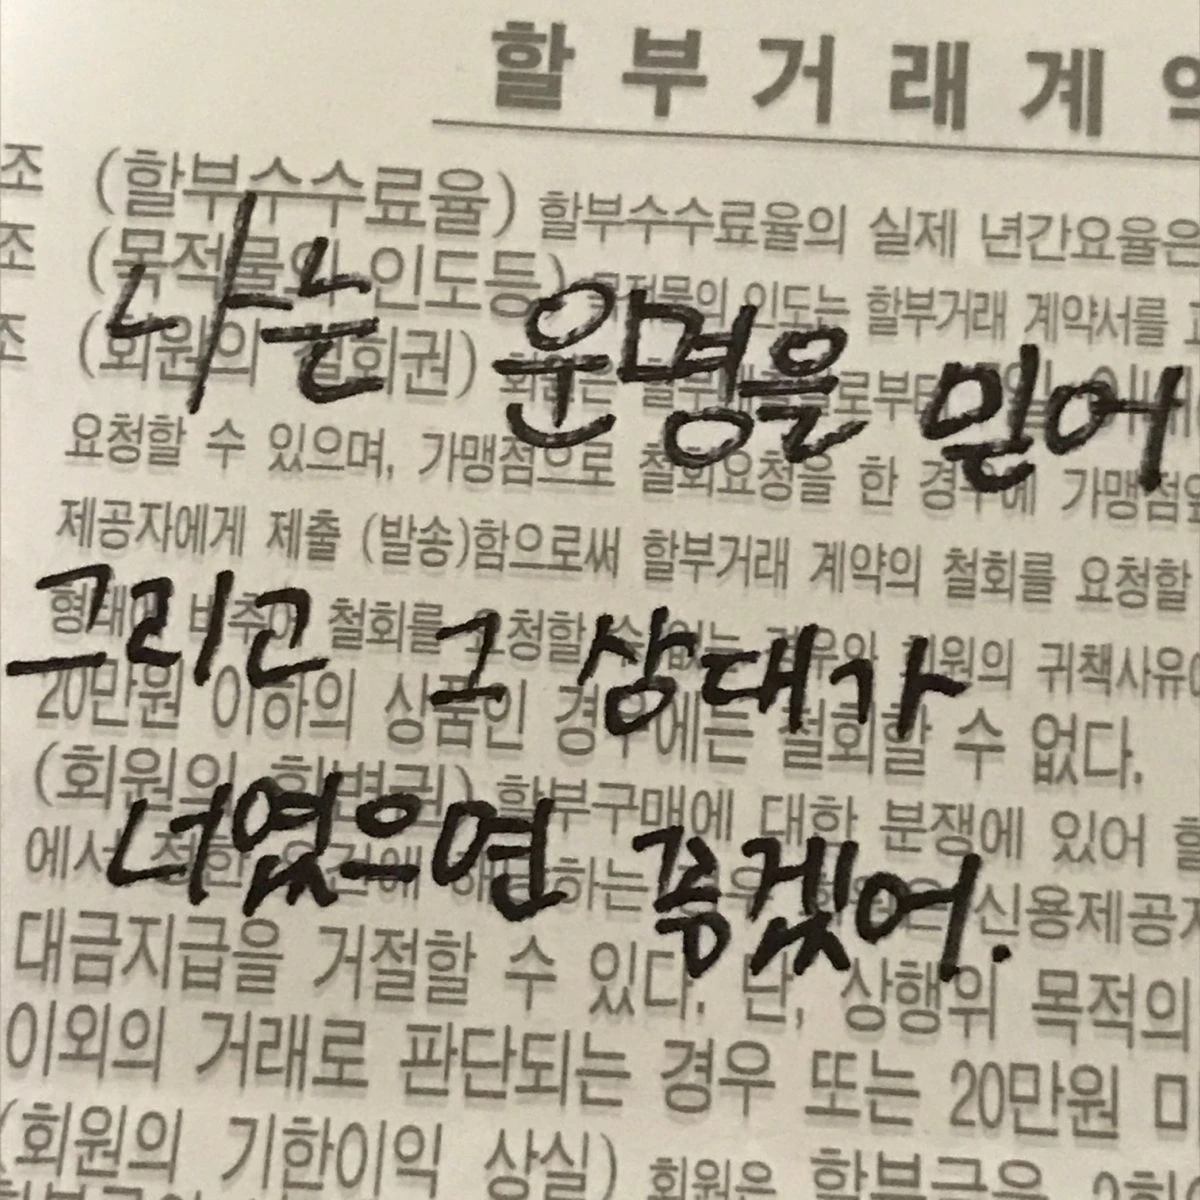 할부거래계
조 (할부수수료율) 할부수수료율의 실제 년간요율은
조 (목적물의 인도등) 목적물의 인도는 할부거래 계약서를
나는 운명을 믿어
조 (회원의 철회권) 회원은
요청할 수 있으며, 가맹점으로 철회요청을 한 경우에 가맹점
제공자에게 제출 (발송)함으로써 할부거래 계약의 철회를 요청할
형태에 비추어 철회를 요청할 수 없는 경우와 회원의 귀책사유
그리고 그 상대가
20만원 이하의 상품인 경우에는 철회할 수 없다.
(회원의 항변권) 할부구매에 대한 분쟁에 있어
너였으면 좋겠어.
에서 정한 요건에 해당하는 경우 회원은 신용제공
대금지급을 거절할 수 있다. 단, 상행위 목적의
이외의 거래로 판단되는 경우 또는 20만원
(회원의 기한이익 상실) 회원은 할부금을